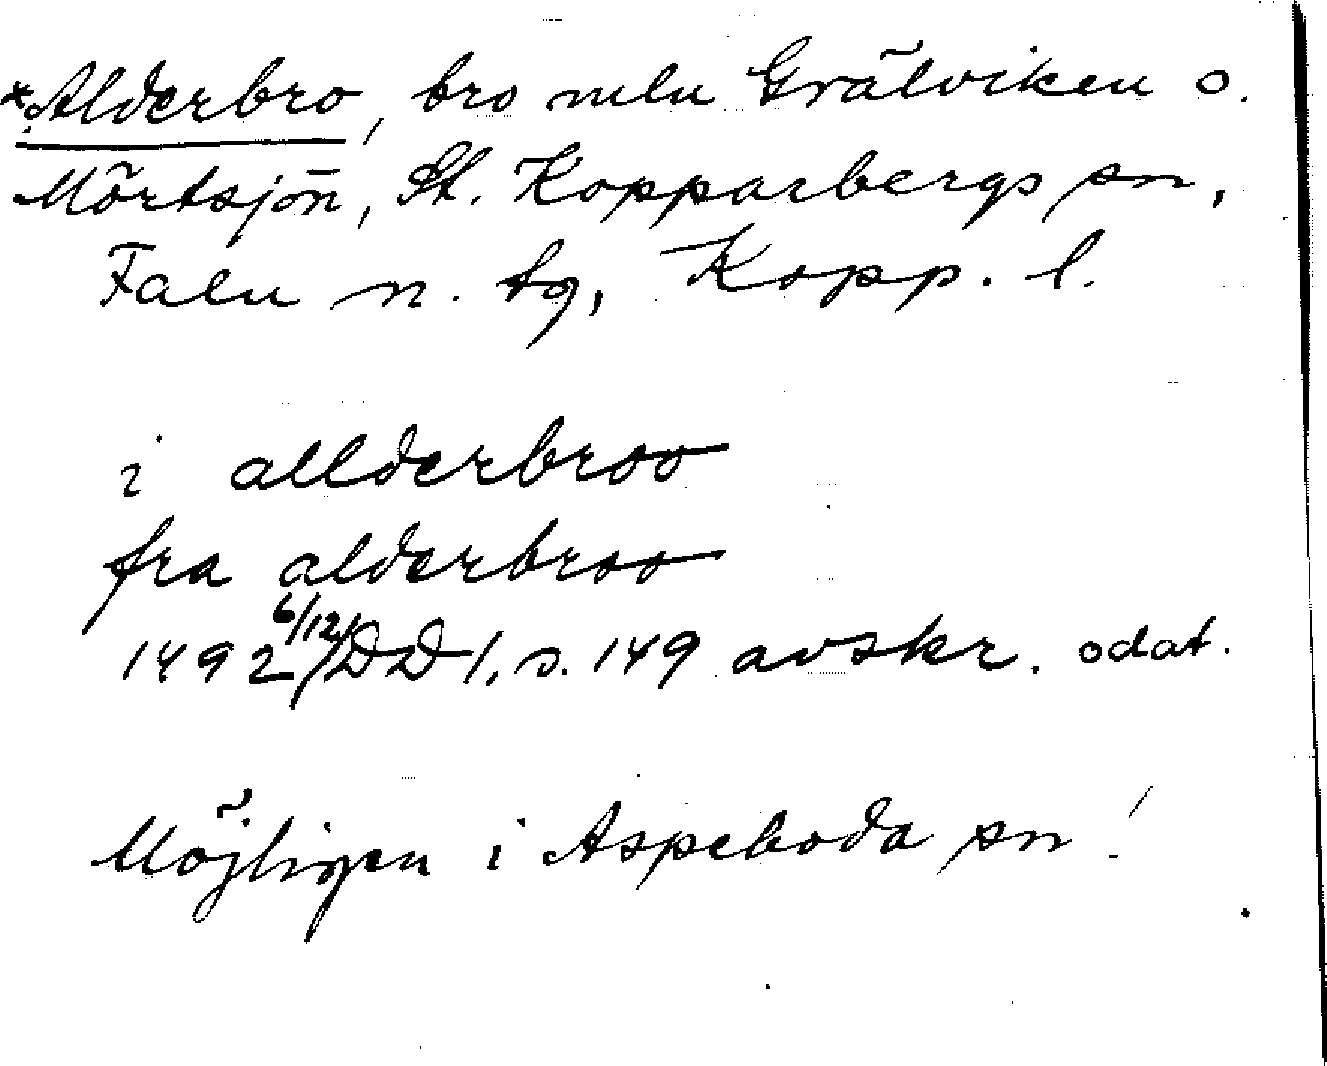 *Alderbro, bro mln Grälviken o.
Mörtsjön, St. Kopparbergs sn,
Falu n. tg, Kopp. l.
i allderbroo
fra alderbroo
1492 6/12/ DD 1, s. 149 avskr. odat.
Möjligen i Aspeboda sn!